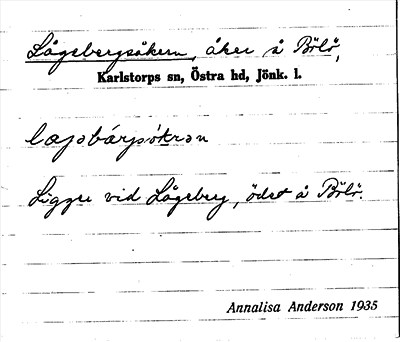 Lågsbergsåkern, åker å Bölö,
Karlstorps sn, Östra hd, Jönk. l.
Ligger vid Lågsberg, ödet å Bölö.
Annalisa Anderson 1935